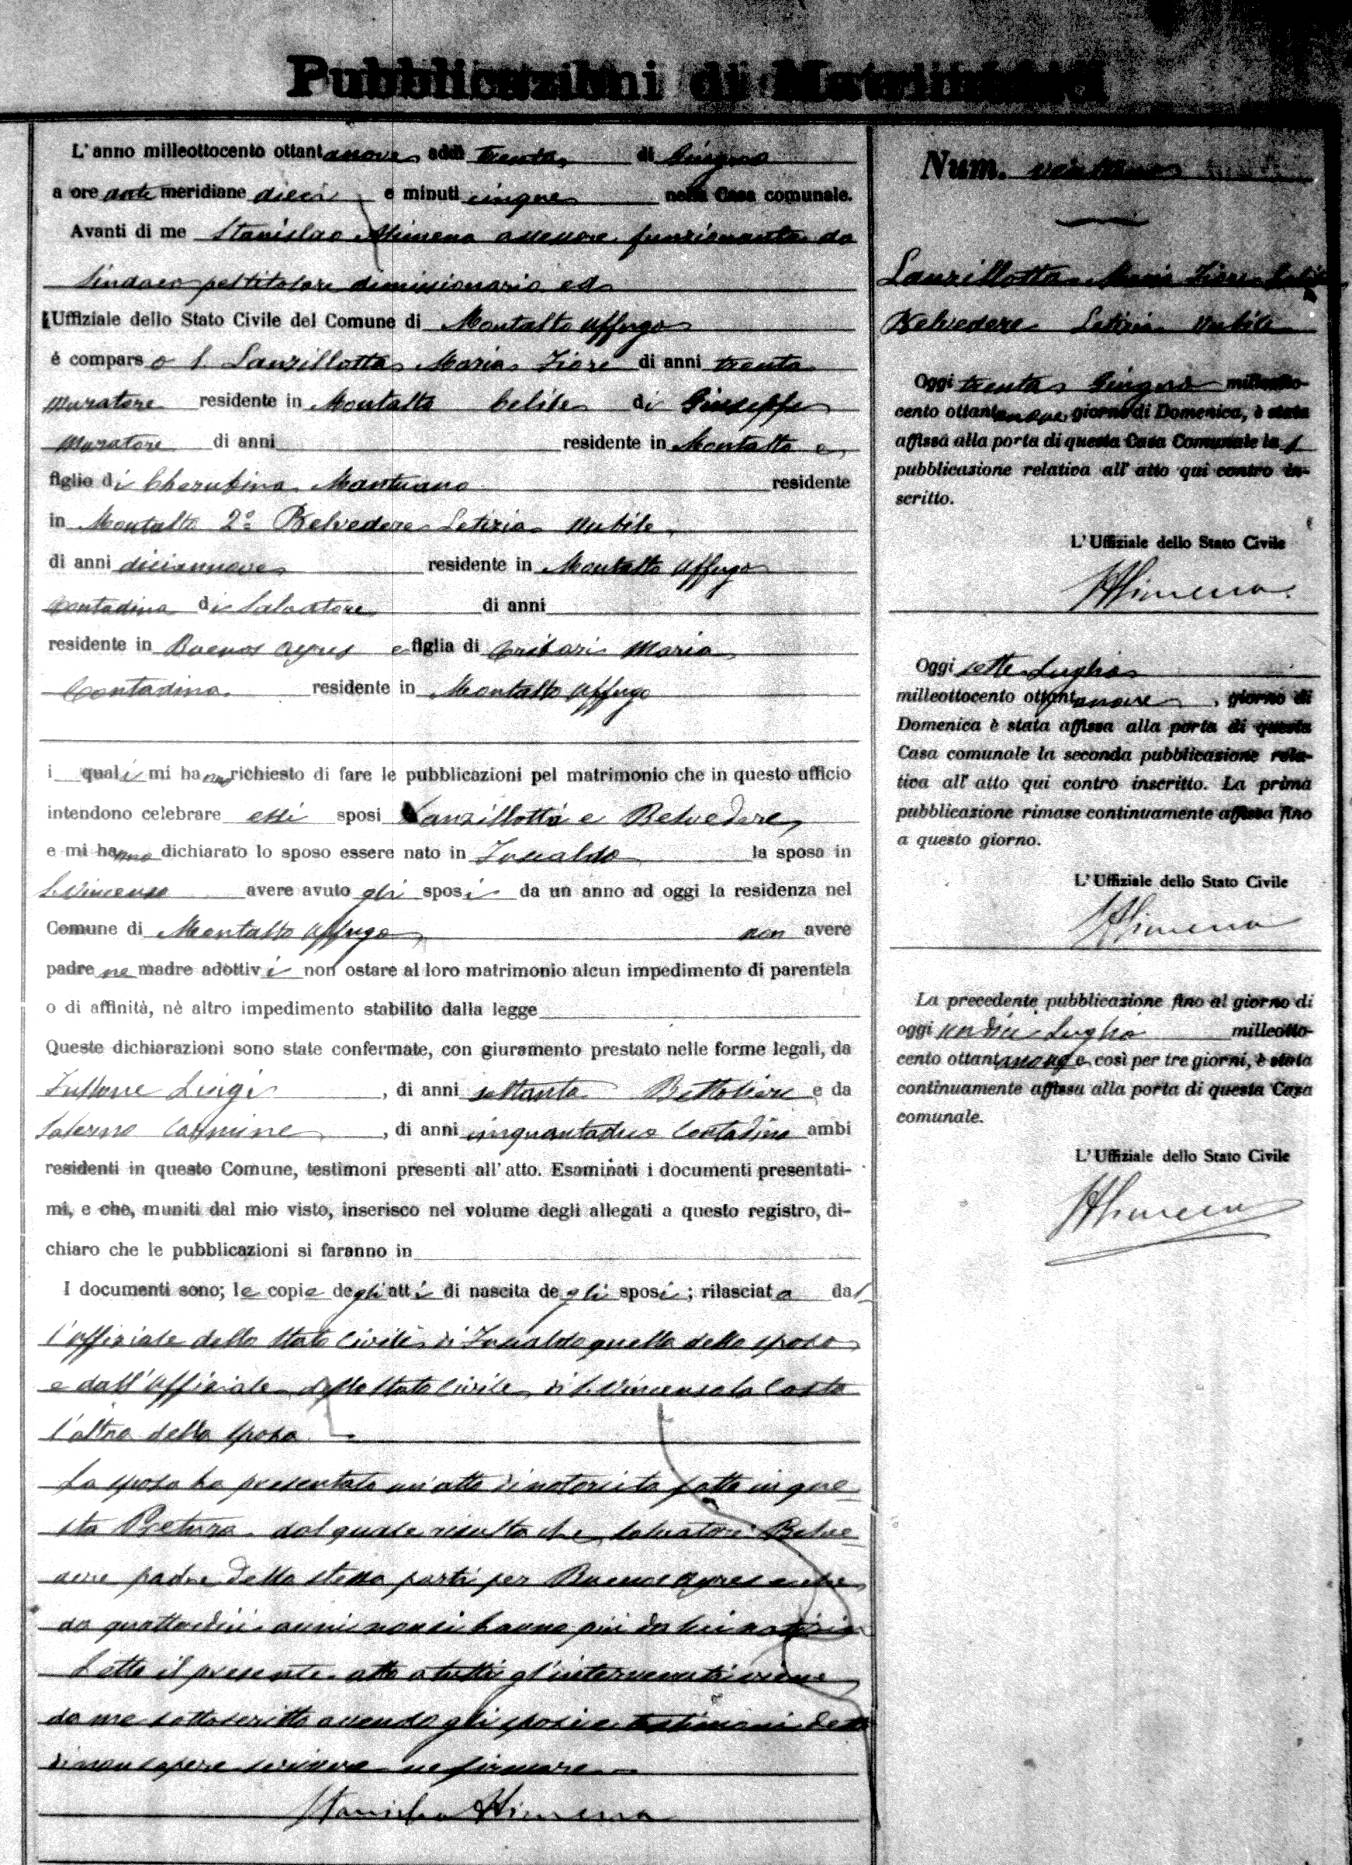 Pubblicazioni di Matrimonio
L'anno milleottocento ottantanove addì trenta di Giugno
a ore ante meridiane dieci e minuti cinque nella Casa comunale.
Avanti di me Stanislao Alimena assessore funzionante da
Sindaco pel titolare dimissionario ed
Uffiziale dello Stato Civile del Comune di Montalto Uffugo
é comparso 1 Lanzillotta Maria Fiore di anni trenta
muratore residente in Montalto celibe di Giuseppe
muratore di anni residente in Montalto e
figlio di Cherubina Mantuano residente
in Montalto 2º Belvedere Letizia nubile
di anni diciannove residente in Montalto Uffugo
Contadina di Salvatore di anni
residente in Buenos Ayres e figlia di Gribari Maria
Contadina residente in Montalto Uffugo
i quali mi hanno richiesto di fare le pubblicazioni pel matrimonio che in questo ufficio
intendono celebrare essi sposi Lanzillotta e Belvedere
e mi hanno dichiarato lo sposo essere nato in Fuscaldo la sposa in
S. Vincenzo avere avuto gli sposi da un anno ad oggi la residenza nel
Comune di Montalto Uffugo non avere
padre ne madre adottivi non ostare al loro matrimonio alcun impedimento di parentela
o di affinità, nè altro impedimento stabilito dalla legge
Queste dichiarazioni sono state confermate, con giuramento prestato nelle forme legali, da
Luigi, di anni settanta Bettoliere e da
Salerno Carmine, di anni cinquantadue Contadino ambi
residenti in questo Comune, testimoni presenti all'atto. Esaminati i documenti presentati-
mi, e che, muniti dal mio visto, inserisco nel volume degli allegati a questo registro, di-
chiaro che le pubblicazioni si faranno in
I documenti sono; le copie degli atti di nascita degli sposi; rilasciata dal
l'uffiziale dello Stato Civile di Fuscaldo quella dello sposo
e dall'Uffiziale dello Stato Civile di S. Vincenzo la Costa
l'altra della sposa.
La sposa ha presentato un'atto di notorietà fatto in que-
sta Pretura dal quale risulta che Salvatore Belve-
dere padre della stessa partì per Buenos Ayres e che
da quattordici anni non si hanno più da lui notizie
Letto il presente atto a tutti gl'intervenuti viene
da me sottoscritto avendo gli sposi e testimoni detto
di non sapere scrivere ne firmare
Stanislao Alimena
Num. ventuno
Lanzillotta Maria Fiore celibe
Belvedere Letizia nubile
Oggi trenta Giugno milleotto-
cento ottantanove giorno di Domenica, è stata
affissa alla porta di questa Casa Comunale la 1
pubblicazione relativa all'atto qui contro in-
scritto.
L'Uffiziale dello Stato Civile
SAlimena
Oggi sette Luglio
milleottocento ottantanove, giorno di
Domenica è stata affissa alla porta di questa
Casa comunale la seconda pubblicazione rela-
tiva all'atto qui contro inscritto. La prima
pubblicazione rimase continuamente affissa fino
a questo giorno.
L'Uffiziale dello Stato Civile
SAlimena
La precedente pubblicazione fino al giorno di
oggi undici Luglio milleotto-
cento ottantanove e così per tre giorni, è stata
continuamente affissa alla porta di questa Casa
comunale.
L'Uffiziale dello Stato Civile
SAlimena